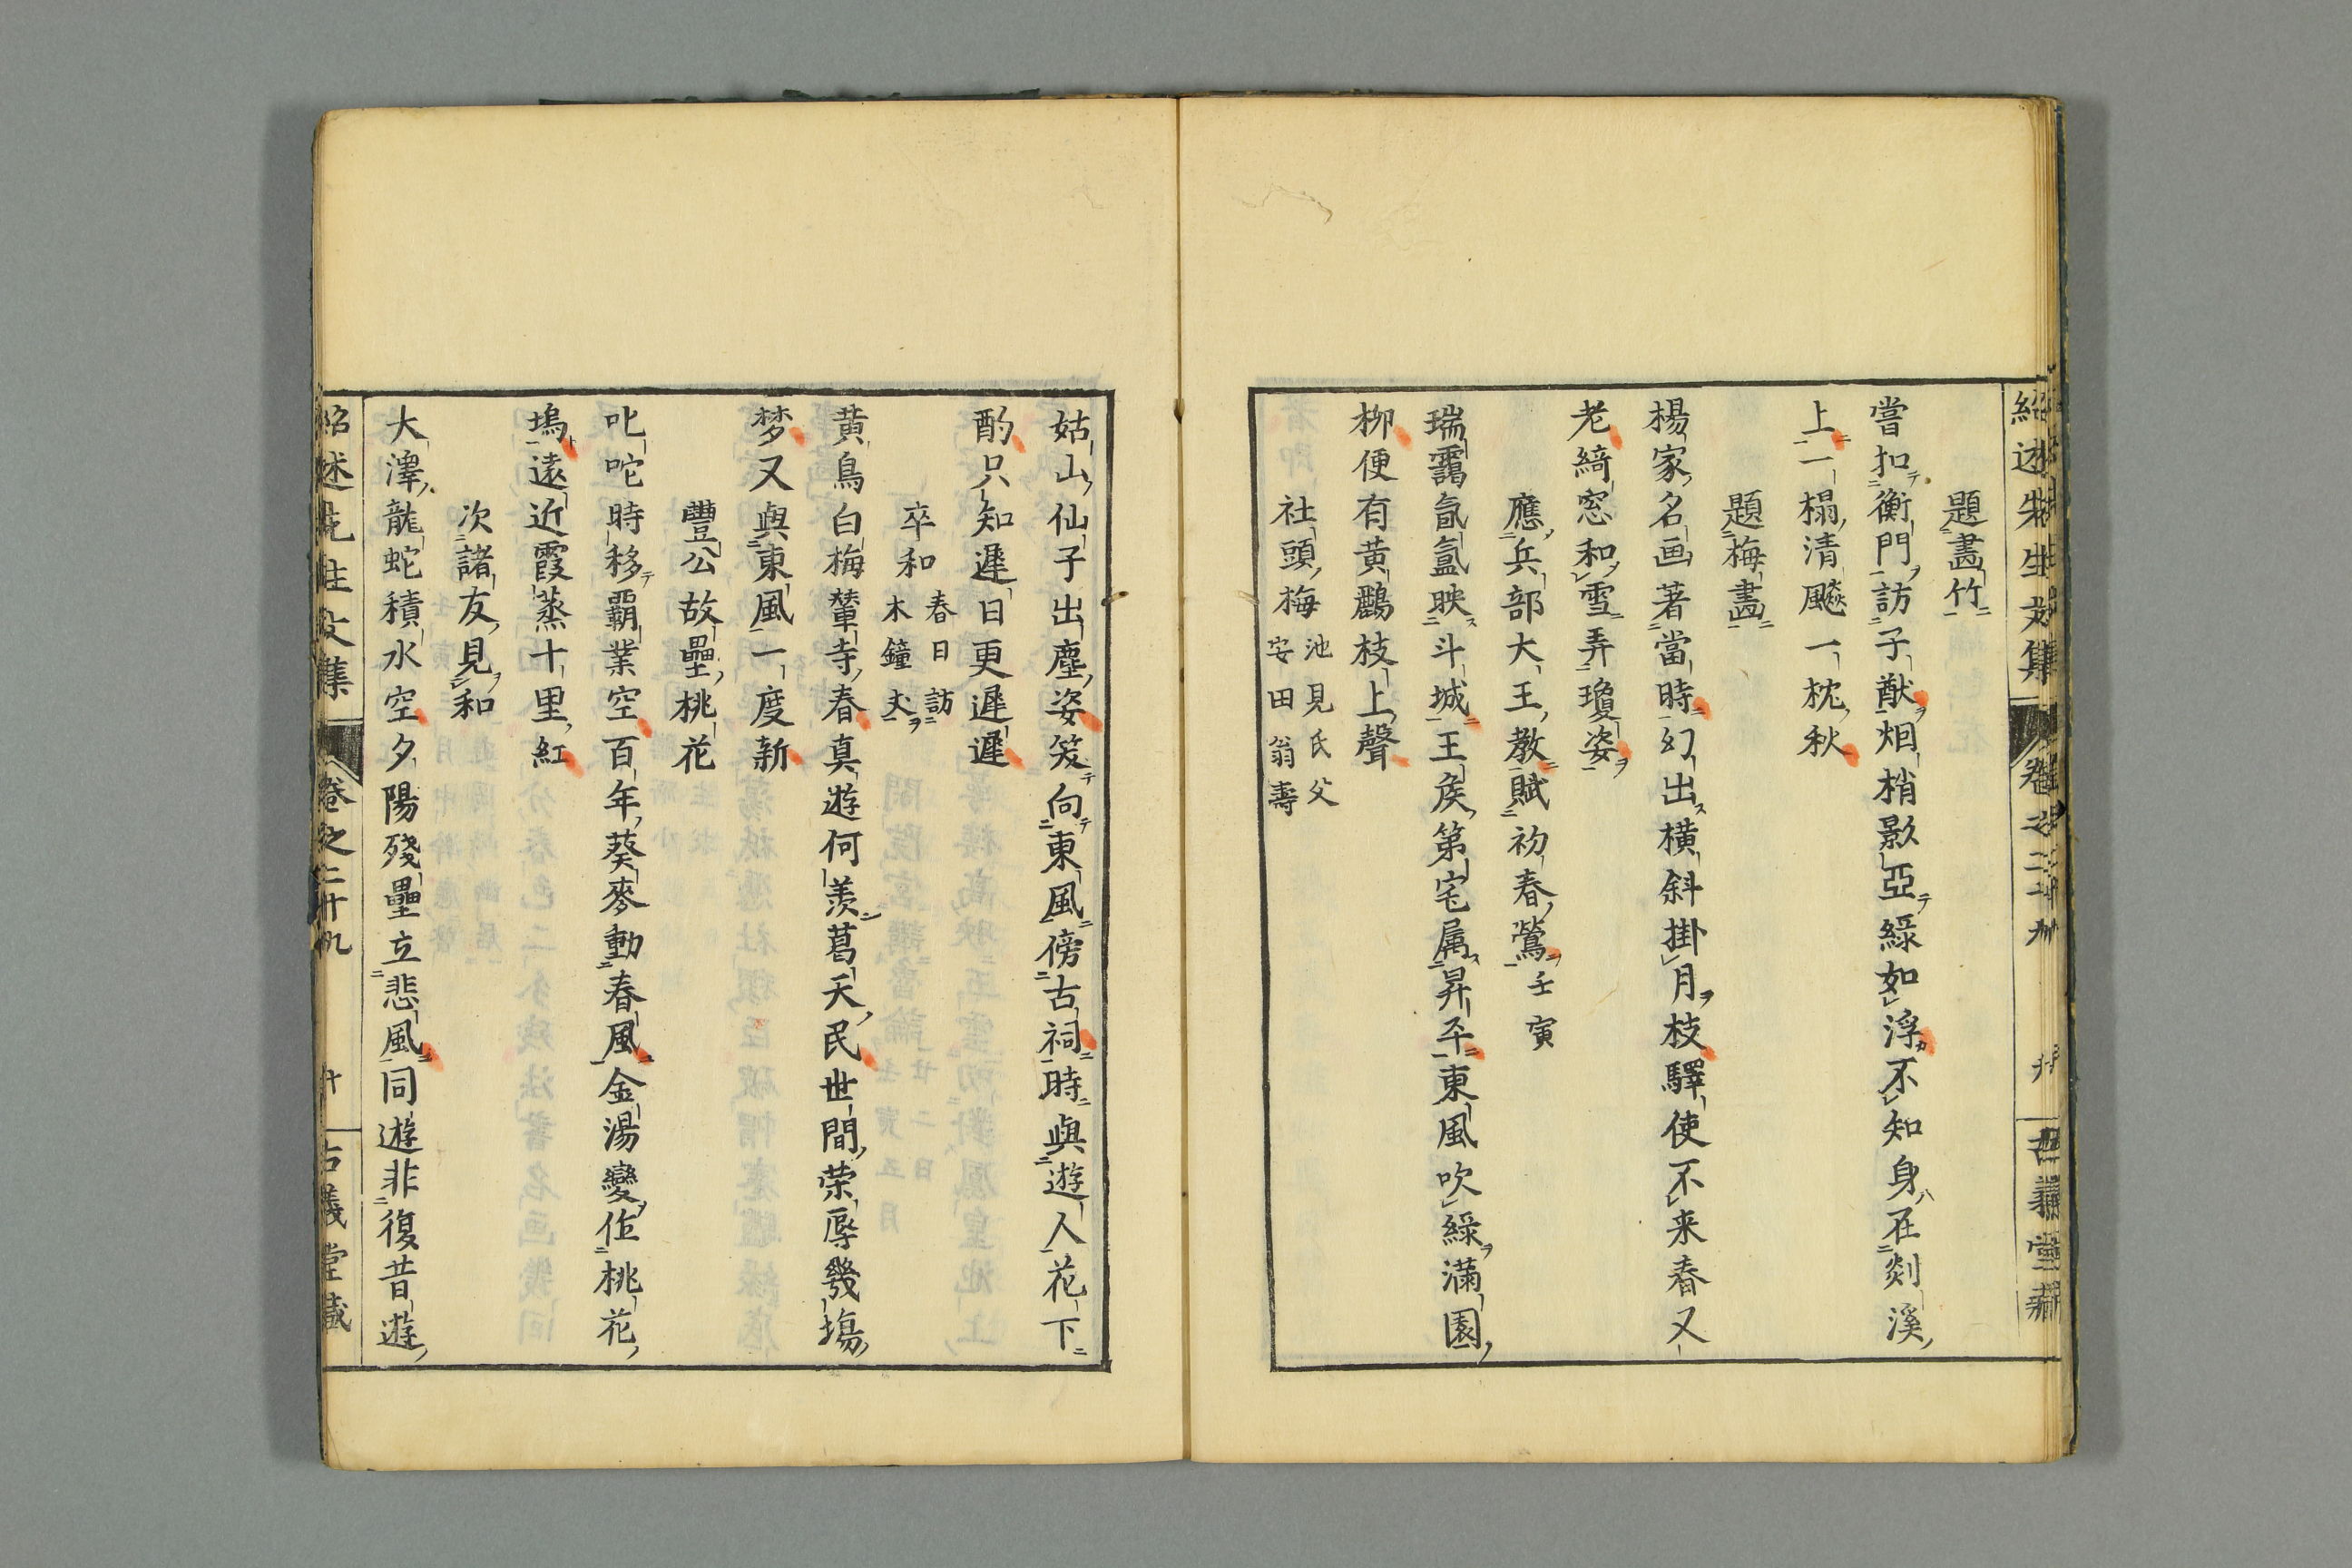 題畫竹
嘗扣衡門訪子猷烟梢影亞綠如浮不知身在剡溪
上一榻清飈一枕秋
題梅畫
楊家名画著當時幻出橫斜掛月枝驛使不来春又
老綺窓和雪弄瓊姿
應兵部大王教賦初春鶯壬寅
瑞靄氤氳映斗城王矦第宅属昇平東風吹綠滿園
柳便有黄鸝枝上聲
社頭梅池見氏父
安田翁壽
姑山仙子出塵姿笑向東風傍古祠時與遊人花下
酌只知遲日更遲遲
卒和春日訪
木鐘丈
黄鳥白梅輦寺春真遊何羨葛天民世間荣辱幾塲
梦又與東風一度新
豐公故壘桃花
叱咤時移覇業空百年葵麥動春風金湯變作桃花
塢遠近霞蒸十里紅
次諸友見和
大澤龍蛇積水空夕陽殘壘立悲風同遊非復昔遊
紹述先生文集 卷之二十九 十 古義堂藏